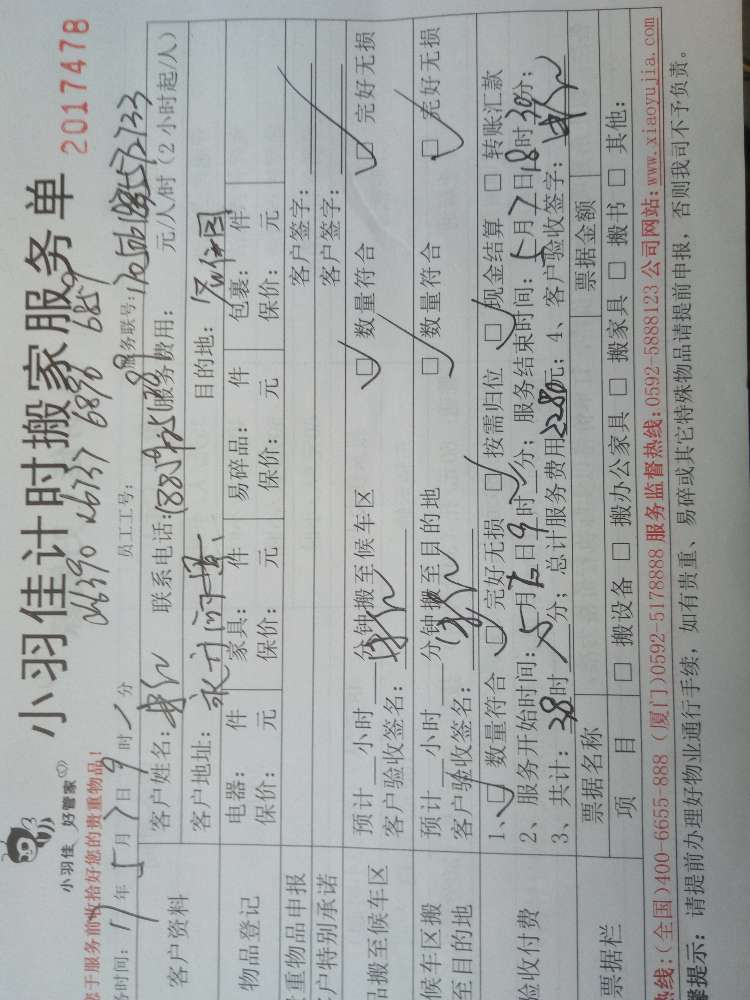 小羽佳计时搬家服务单
2017478
小羽佳 好管家
06390 06737 6896 6859
您于服务前收拾好您的贵重物品!
务时间: 17年5月7日9时 分 员工工号: 服务联号:
客户资料 客户姓名: 联系电话: 服务费用: 元/人/时(2小时起/人)
客户地址: 目的地:
物品登记 电器: 件 家具: 件 易碎品: 件 包裹: 件
保价: 元 保价: 元 保价: 元 保价: 元
重物品申报 客户签字:
户特别承诺 客户签字:
品搬至候车区 预计 小时 分钟搬至候车区 □ 数量符合 □ 完好无损
客户验收签名:
候车区搬至目的地 预计 小时 分钟搬至目的地 □ 数量符合 □ 完好无损
客户验收签名:
验收付费 1、□ 数量符合 □ 完好无损 □ 按需归位 □ 现金结算 □ 转账汇款
2、服务开始时间: 5月7日9时 分; 服务结束时间: 5月7日18时30分;
3、共计: 38时 分; 总计服务费用2280元; 4、客户验收签字:
票据栏 票据名称 票据金额
项 目 □ 搬设备 □ 搬办公家具 □ 搬家具 □ 搬书 □ 其他:
热线:(全国)400-6655-888 (厦门)0592-5178888 服务监督热线:0592-5888123 公司网站:www.xiaoyujia.com
馨提示: 请提前办理好物业通行手续, 如有贵重、易碎或其它特殊物品请提前申报, 否则我司不予负责。